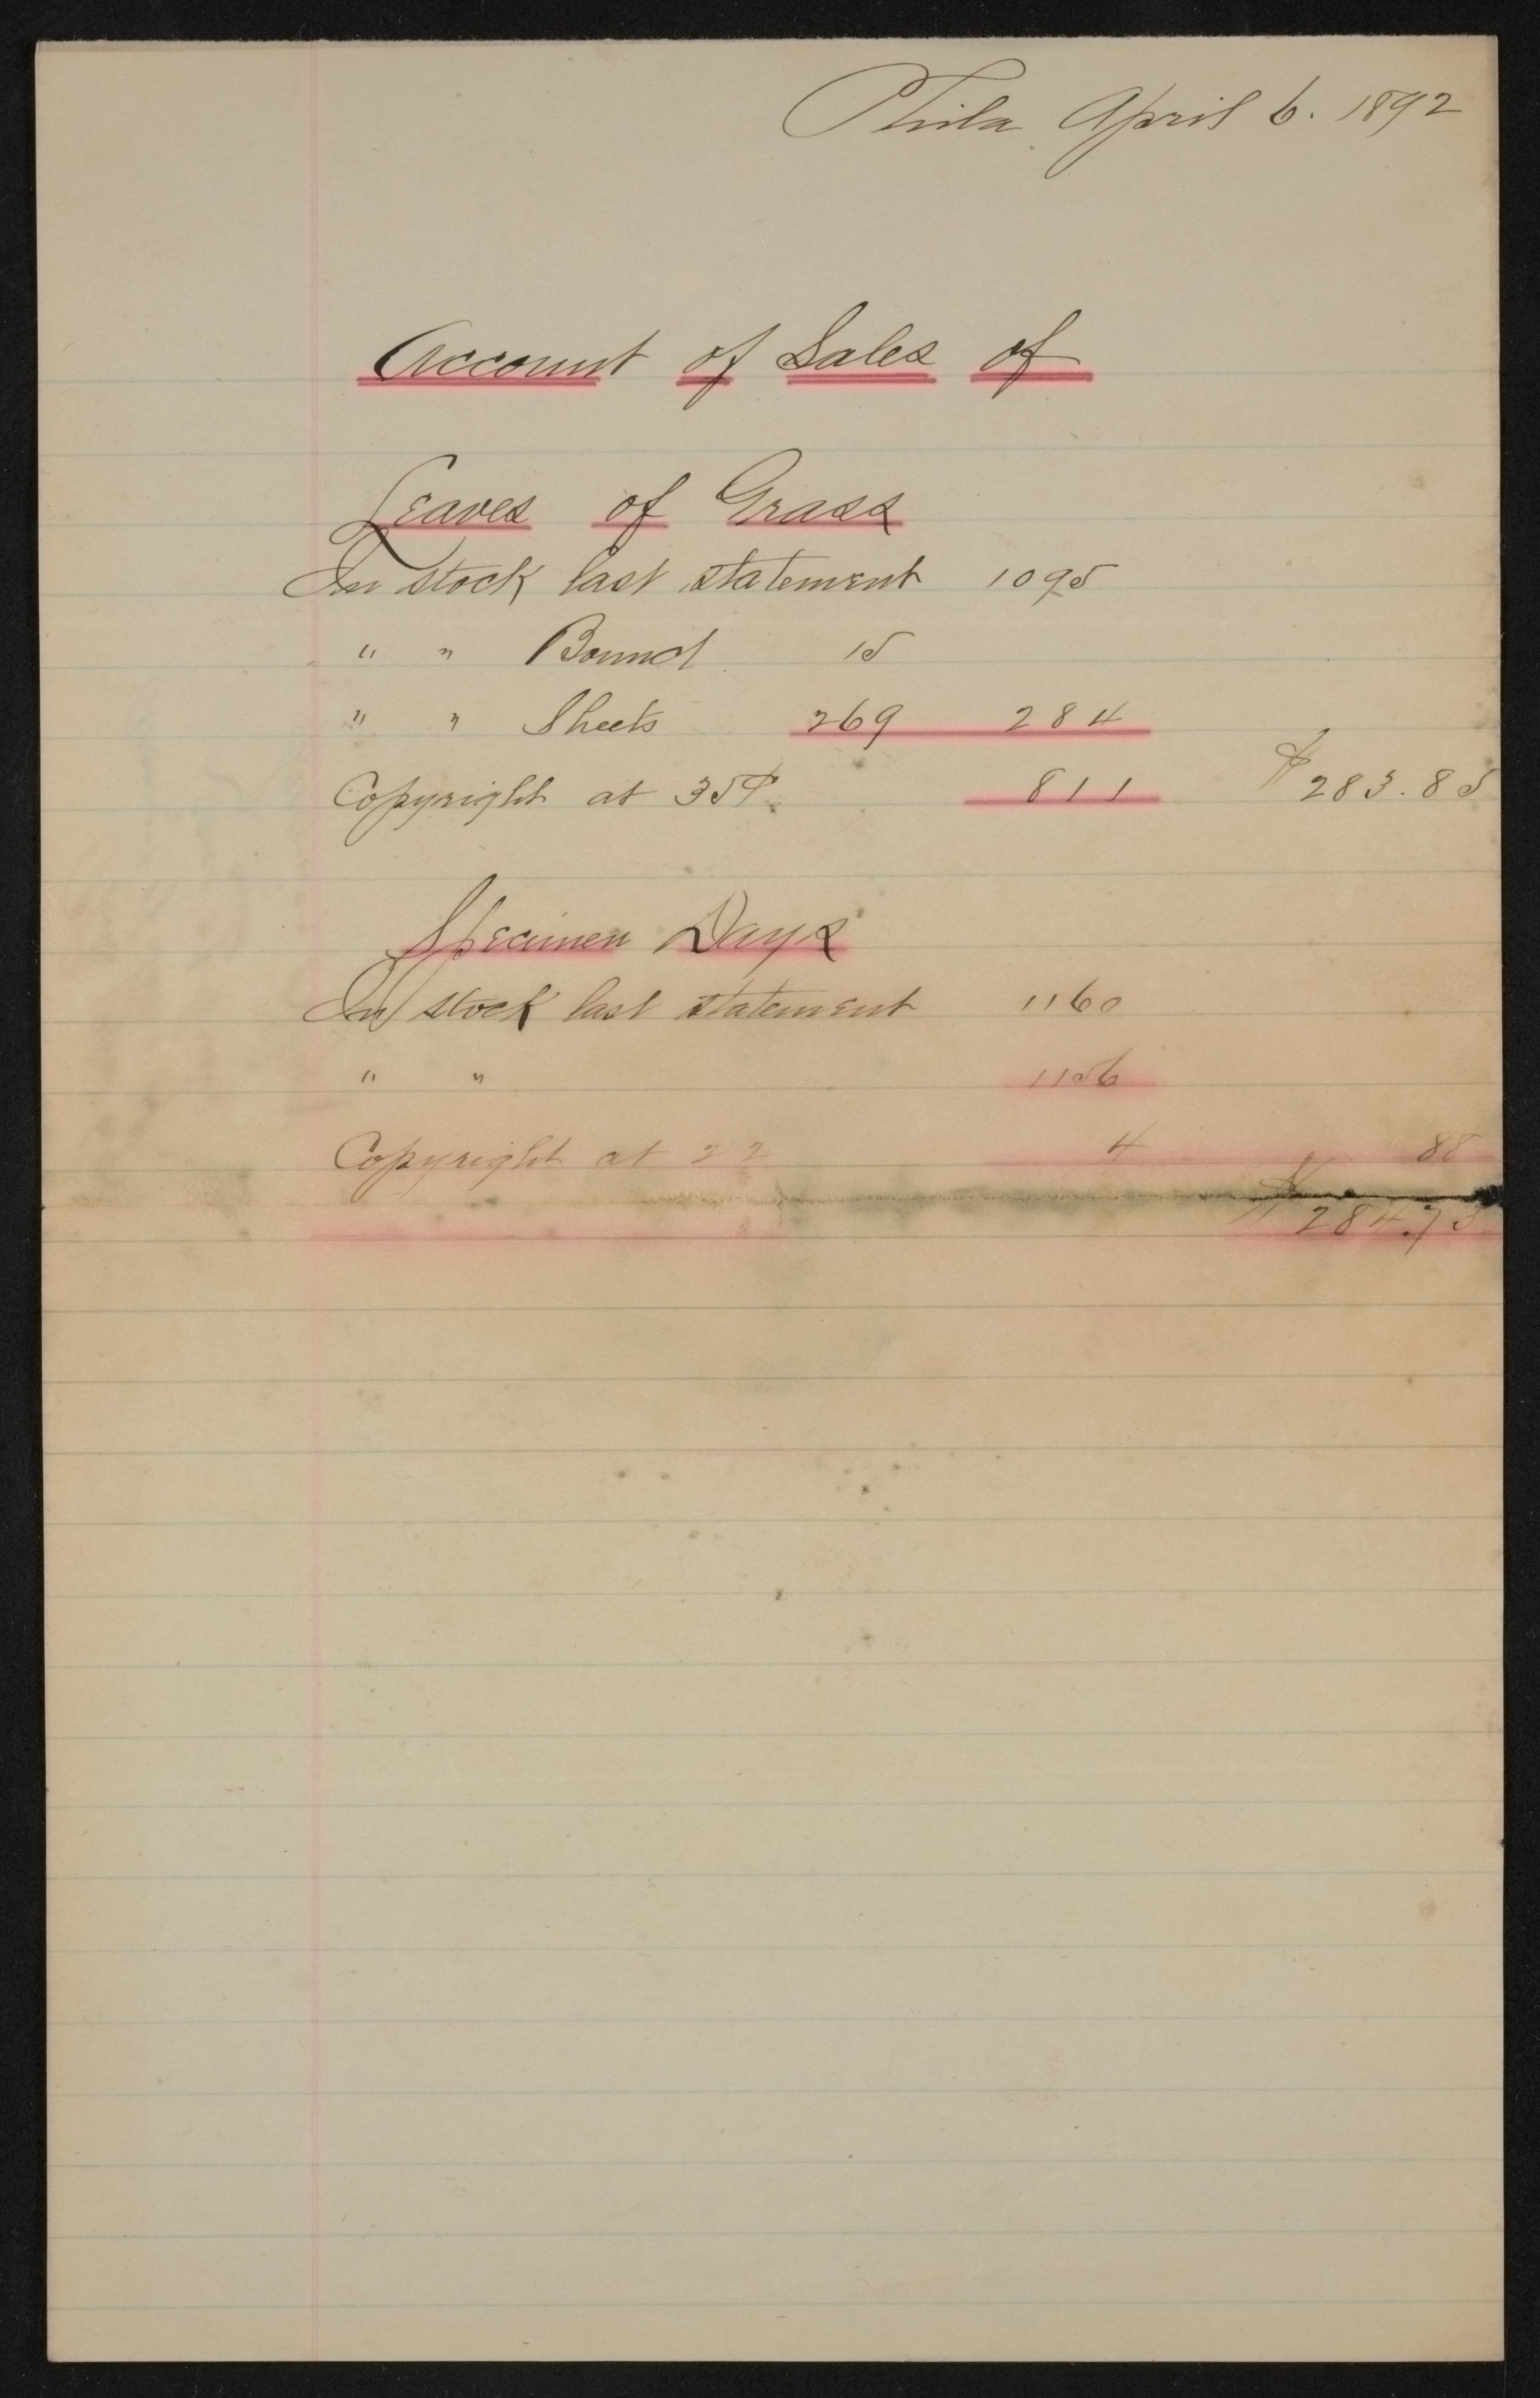 Phila April 6. 1892
Account of Sales of
Leaves of Grass
In stock last statement 1095
" " Bound 15
" " Sheets 269 284
Copyright at 35¢ 811 $283.85
Specimen Days
In stock last statement 1160
" " 1156
Copyright at 22 4 88
$284.73